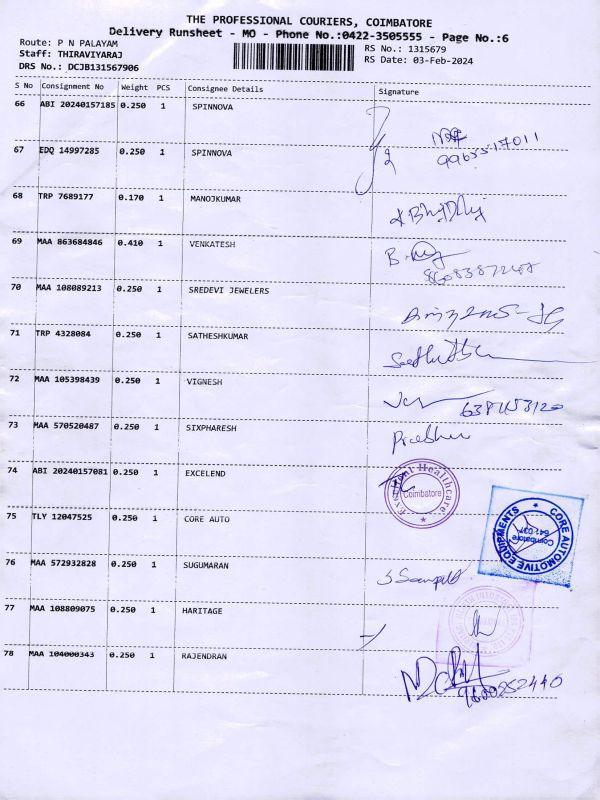 THE PROFESSIONAL COURIERS, COIMBATORE
Delivery Runsheet - MO - Phone No.:0422-3505555 - Page No.:6
Route: P N PALAYAM
Staff: THIRAVIYARAJ
DRS No.: DCJB131567906
RS No.: 1315679
RS Date: 03-Feb-2024
S No Consignment No Weight PCS Consignee Details Signature
66 ABI 20240157185 0.250 1 SPINNOVA
67 EDQ 14997285 0.250 1 SPINNOVA
68 TRP 7689177 0.170 1 MANOJKUMAR
69 MAA 863684846 0.410 1 VENKATESH
70 MAA 108089213 0.250 1 SREDEVI JEWELERS
71 TRP 4328084 0.250 1 SATHESHKUMAR
72 MAA 105398439 0.250 1 VIGNESH
73 MAA 570520487 0.250 1 SIXPHARESH
Prabhu
74 ABI 20240157081 0.250 1 EXCELEND
Healthcare
Coimbatore
75 TLY 12047525 0.250 1 CORE AUTO
CORE AUTOMOTIVE EQUIPMENTS
Coimbatore
641 037
76 MAA 572932828 0.250 1 SUGUMARAN
77 MAA 108809075 0.250 1 HARITAGE
78 MAA 104000343 0.250 1 RAJENDRAN
9600252440